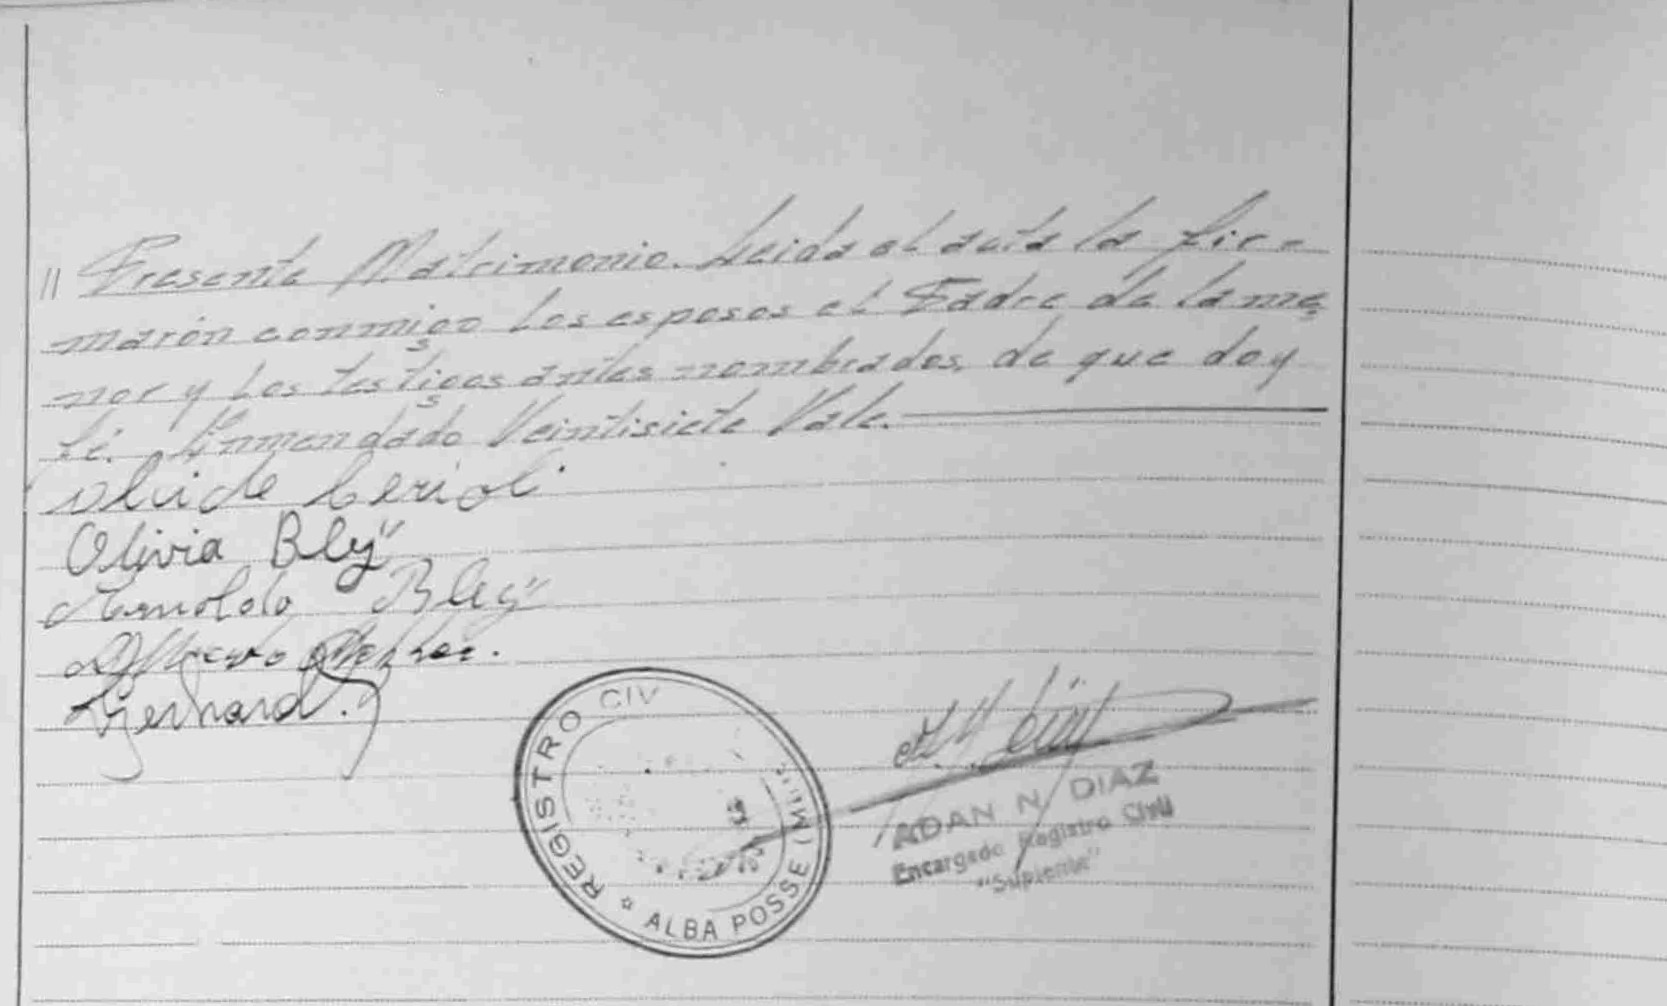 // Presente Matrimonio. Leida el acta la fir-
marón conmigo los esposos el Padre de la me
nor y los testigos antes nombrados, de que doy
fé. Enmendado Veintisiete Vale.
Olivia Bleÿ
Arnoldo Bleÿ
Gerhard.
REGISTRO CIV
ALBA POSSE (MIS
ADAN N. DIAZ
Encargado Registro Civil
"Suplente"